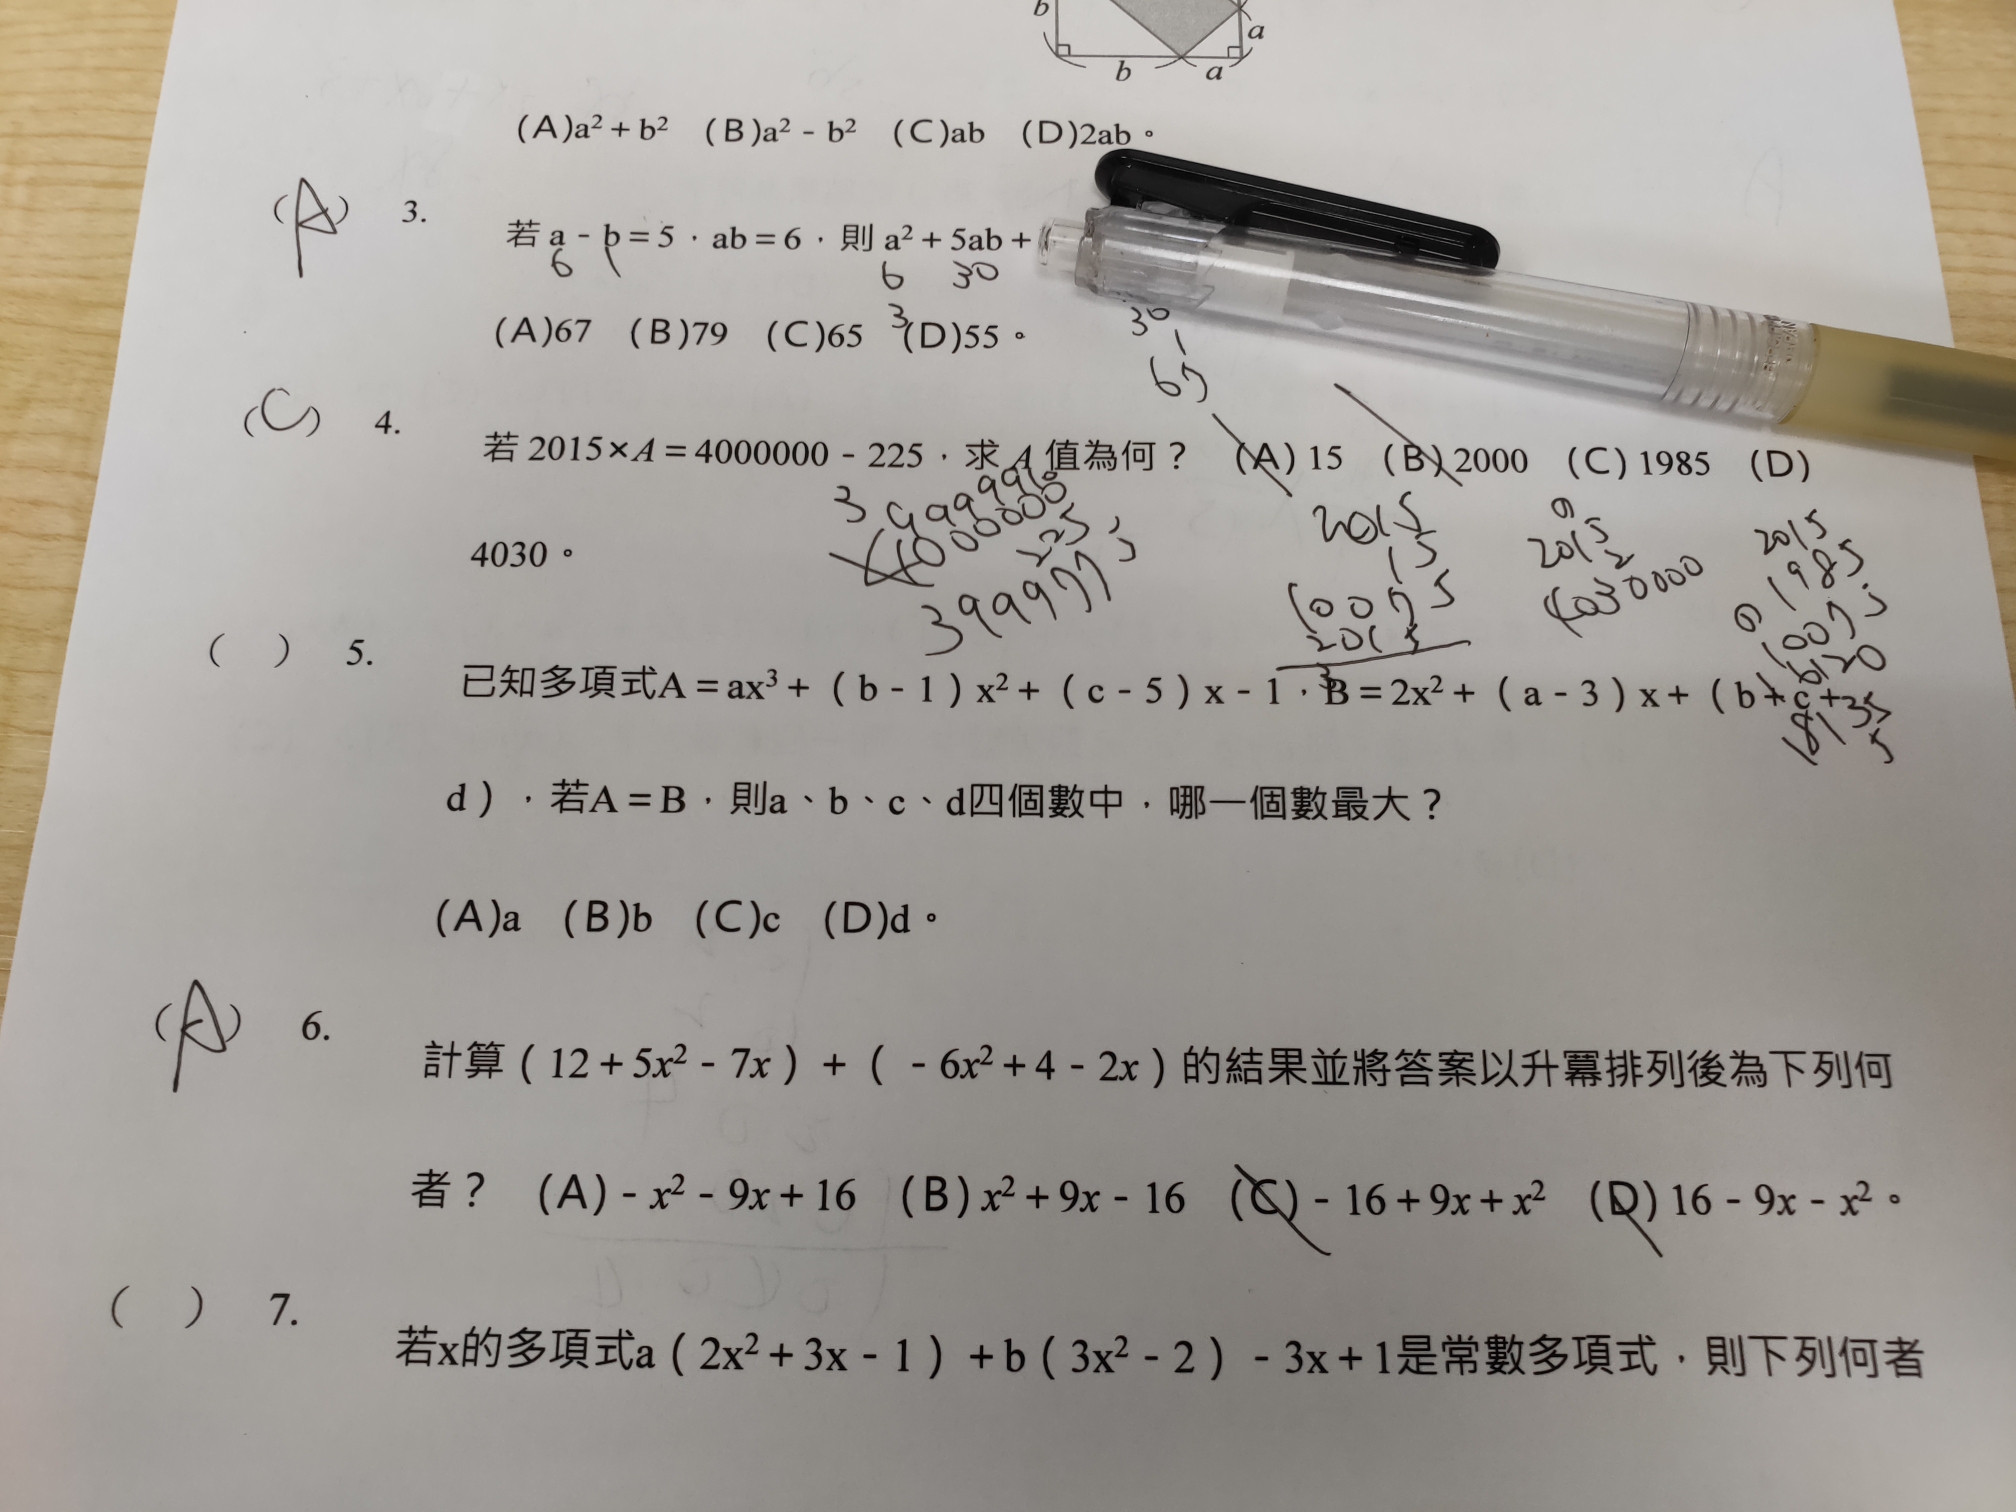 b
a
b a
(A)a² + b² (B)a² - b² (C)ab (D)2ab。
(A) 3.
若 a - b = 5，ab = 6，則 a² + 5ab +
6 1 6 30
3
30
1
67
(A)67 (B)79 (C)65 (D)55。
(C) 4.
若 2015×A = 4000000 - 225，求 A 值為何？ (A) 15 (B) 2000 (C) 1985 (D)
4030。
4000000
225
3999775
2015
15
10075
2015
2015
2
4030000
2015
1985
10075
( ) 5.
已知多項式A = ax³ + ( b - 1 ) x² + ( c - 5 ) x - 1，B = 2x² + ( a - 3 ) x + ( b + c +
d )，若A = B，則a、b、c、d四個數中，哪一個數最大？
(A)a (B)b (C)c (D)d。
(A) 6.
計算 ( 12 + 5x² - 7x ) + ( - 6x² + 4 - 2x ) 的結果並將答案以升冪排列後為下列何
者？ (A) - x² - 9x + 16 (B) x² + 9x - 16 (C) - 16 + 9x + x² (D) 16 - 9x - x²。
( ) 7.
若x的多項式a ( 2x² + 3x - 1 ) + b ( 3x² - 2 ) - 3x + 1是常數多項式，則下列何者